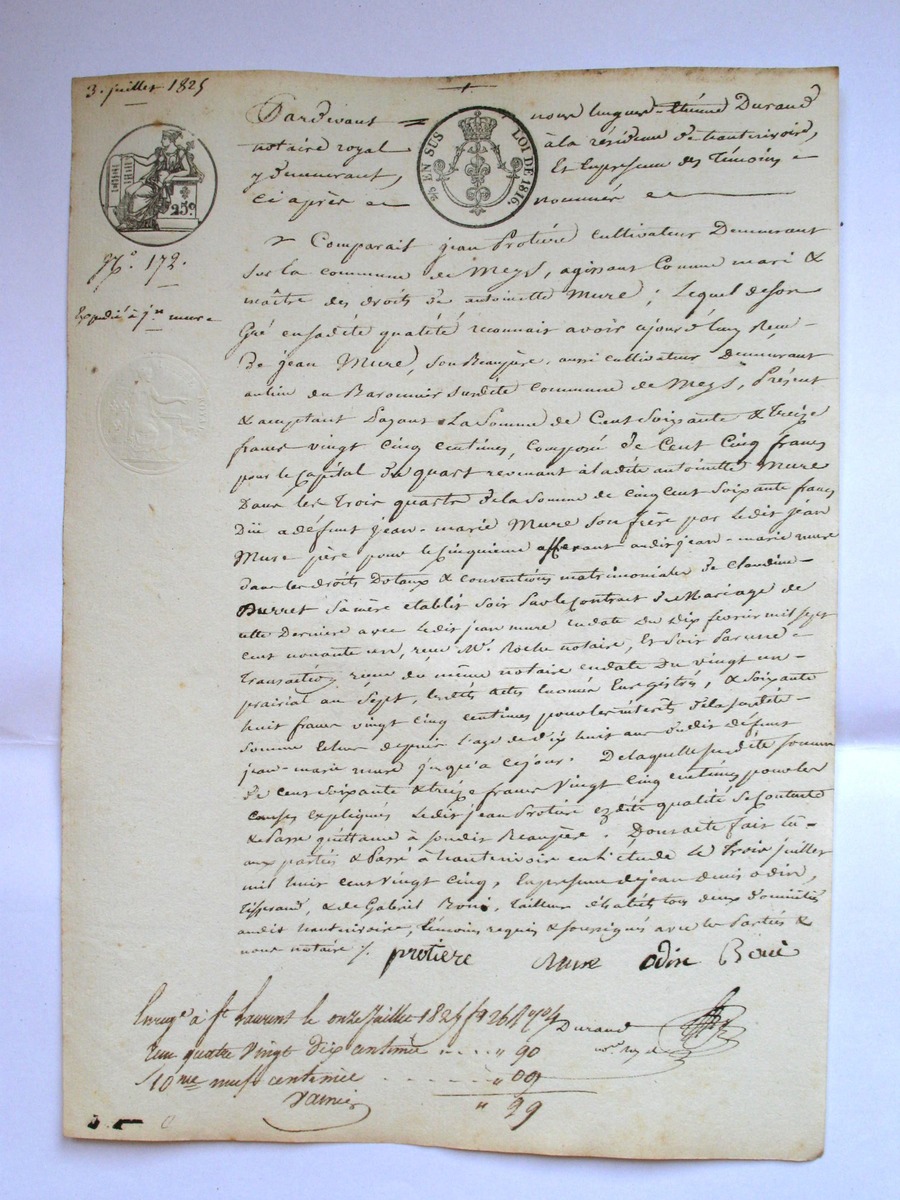 3. juillet 1825
Pardevant = nous Hugues-Etienne Durand
notaire royal à la résidence de hauterivoire,
y demeurant, Et En présence des Témoins
ci après nommés
EN SUS LOI DE 1816.
25c
N.o 172.
Expédié à jn mure
Comparait jean Protière cultivateur Demeurant
sur la commune de Meys, agissant Comme mari &
maître des droits de antoinette Mure ; Lequel de son
Gré en sadite qualité reconnait avoir ajourd'huy Reçu
De jean Mure, son Beaupère, aussi cultivateur Demeurant
au lieu du Baronnier susdite commune de Meys, Présent
& acceptant La Somme de Cent Soixante & treize
francs vingt cinq centimes, composée de Cent Cinq francs
pour le Capital du quart revenant à ladite antoinette Mure
Dans les trois quarts de la somme de cinq cent soixante francs
Dûe a défunt jean-marie Mure son frère par ledit jean
Mure père pour le cinquième afferant audit jean-marie mure
dans les droits Dotaux & conventions matrimoniales de Claudine
Burret sa mère établis soit par le Contrat de Mariage de
cette Dernière avec ledit jean mure en date du Dix février mil sept
cent nonante un, reçu Mr. Roche notaire, Et soit par une
transaction reçue du même notaire en date du vingt un
prairial an sept, lesdits actes Enregistrés, & soixante
huit francs vingt cinq centimes pour les interets de la susdite
somme depuis l'age de dix huit ans dudit defunt
jean-marie mure jusqu'a ce jour. De laquelle susdite somme
de cent soixante & treize francs Vingt Cinq centimes pour les
causes expliqués ledit jean Protière ezdite qualité se Contente
& Passe quittance à sondit Beaupère. Dont acte fait lu
aux parties & Passé à hauterivoire en l'étude le Trois juillet
mil huit cent vingt cinq, En présence de jean denis odin,
tisserand, & de Gabriel Boni, tailleur d'habits tous deux domiciliés
audit hauterivoire, témoins requis & soussignés avec les Parties &
nous notaire /.
protiere mure odin Boni
Durand
Enregé à St Laurent le onze juillet 1825
reçu quatre vingt dix centimes " 90
10me neuf centimes " 09
" 99